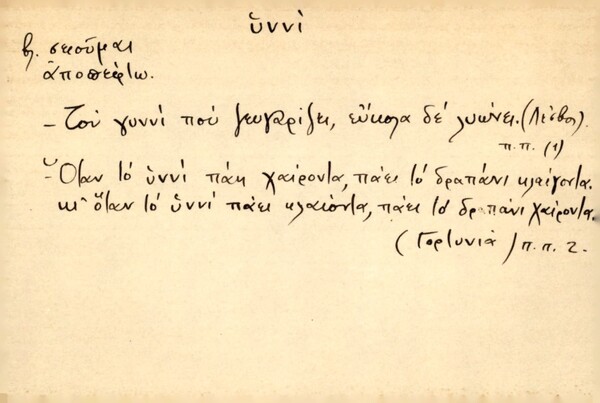 ὓννὶ
βλ. σκούμαι
ἀποπέφτω.
– Τοὺ γυννὶ ποὺ ζευγαρίζει, εὔκολα δὲ λυώνει. (Λέσβος).
π.π. (1)
– Ὅταν τὸ ὑννὶ πάῃ χαίροντα, πάει τὸ δραπάνι κλαίγοντα.
κι' ὅταν τὸ ὑννὶ πάει κλαίοντα, πάει τὸ δραπάνι χαίροντα.
(Γορτυνία) π. π. 2.